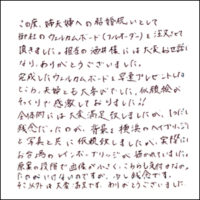 この度、姉夫婦への結婚祝いとして
御社のウェルカムボード(フルオーダー)を注文させて
頂きました。担当の酒井様には大変お世話に
なり、ありがとうございました。
完成したウェルカムボードを早速プレゼントした
ところ、夫婦とも大喜びでした。似顔絵が
そっくりで感激しておりました!!
全体的には大変満足致しましたが、1つだけ
残念だったのが、背景を横浜のベイブリッジ
と写真と共に依頼致しましたが、実際には
お台場のレインボーブリッジが描かれていました。
原案の段階で画像が小さく、こちらも気付かなかっ
たのがいけないのですが、少し残念です。
それ以外は大変満足です。ありがとうございました